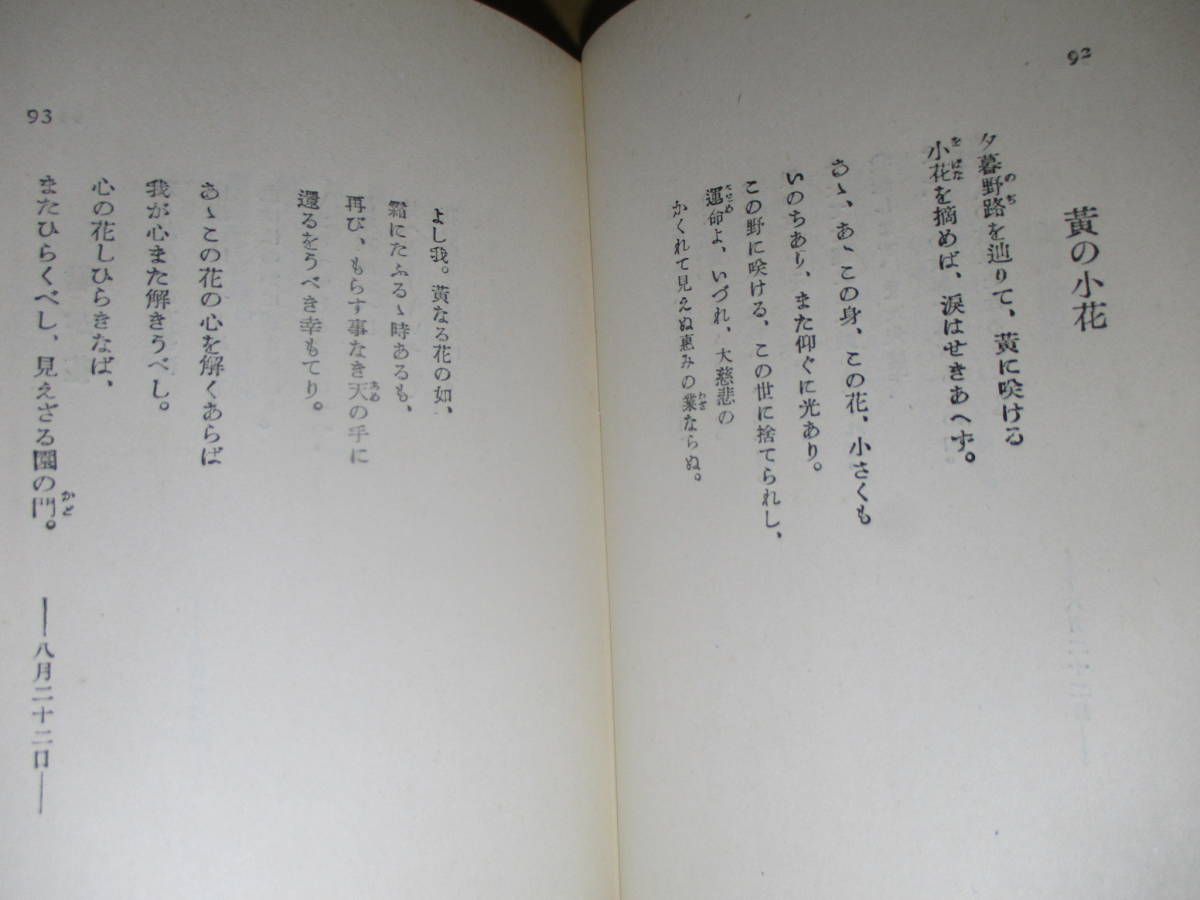 92
黄の小花
夕暮野路を辿りて、黄に咲ける
のぢ
小花を摘めば、涙はせきあへず。
をばな
あゝ、あゝこの身、この花、小さくも
いのちあり、また仰ぐに光あり。
この野に咲ける、この世に捨てられし、
運命よ、いづれ、大慈悲の
さだめ
かくれて見えぬ恵みの業ならぬ。
わざ
よし我。黄なる花の如、
霜にたふるゝ時あるも、
再び、もらす事なき天の手に
あめ
還るをうべき幸もてり。
あゝこの花の心を解くあらば
我が心また解きうべし。
心の花しひらきなば、
またひらくべし、見えざる園の門。
かど
――八月二十二日――
93